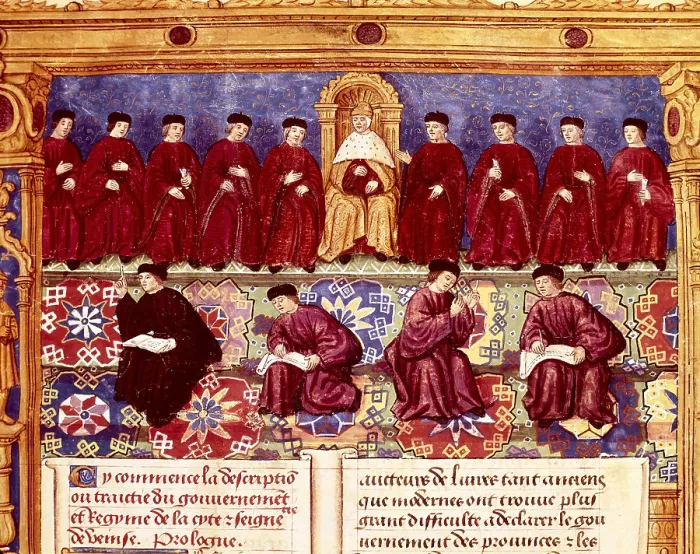 Cy commence la descriptiõ
ou traictie du gouvernemẽt
et Regyme de la cyte & seigneurie
de venise. Prologue.
aucteurs de livres tant anciens
que modernes ont trouve plus
grant difficulte a declarer le gou
vernement des provinces & les